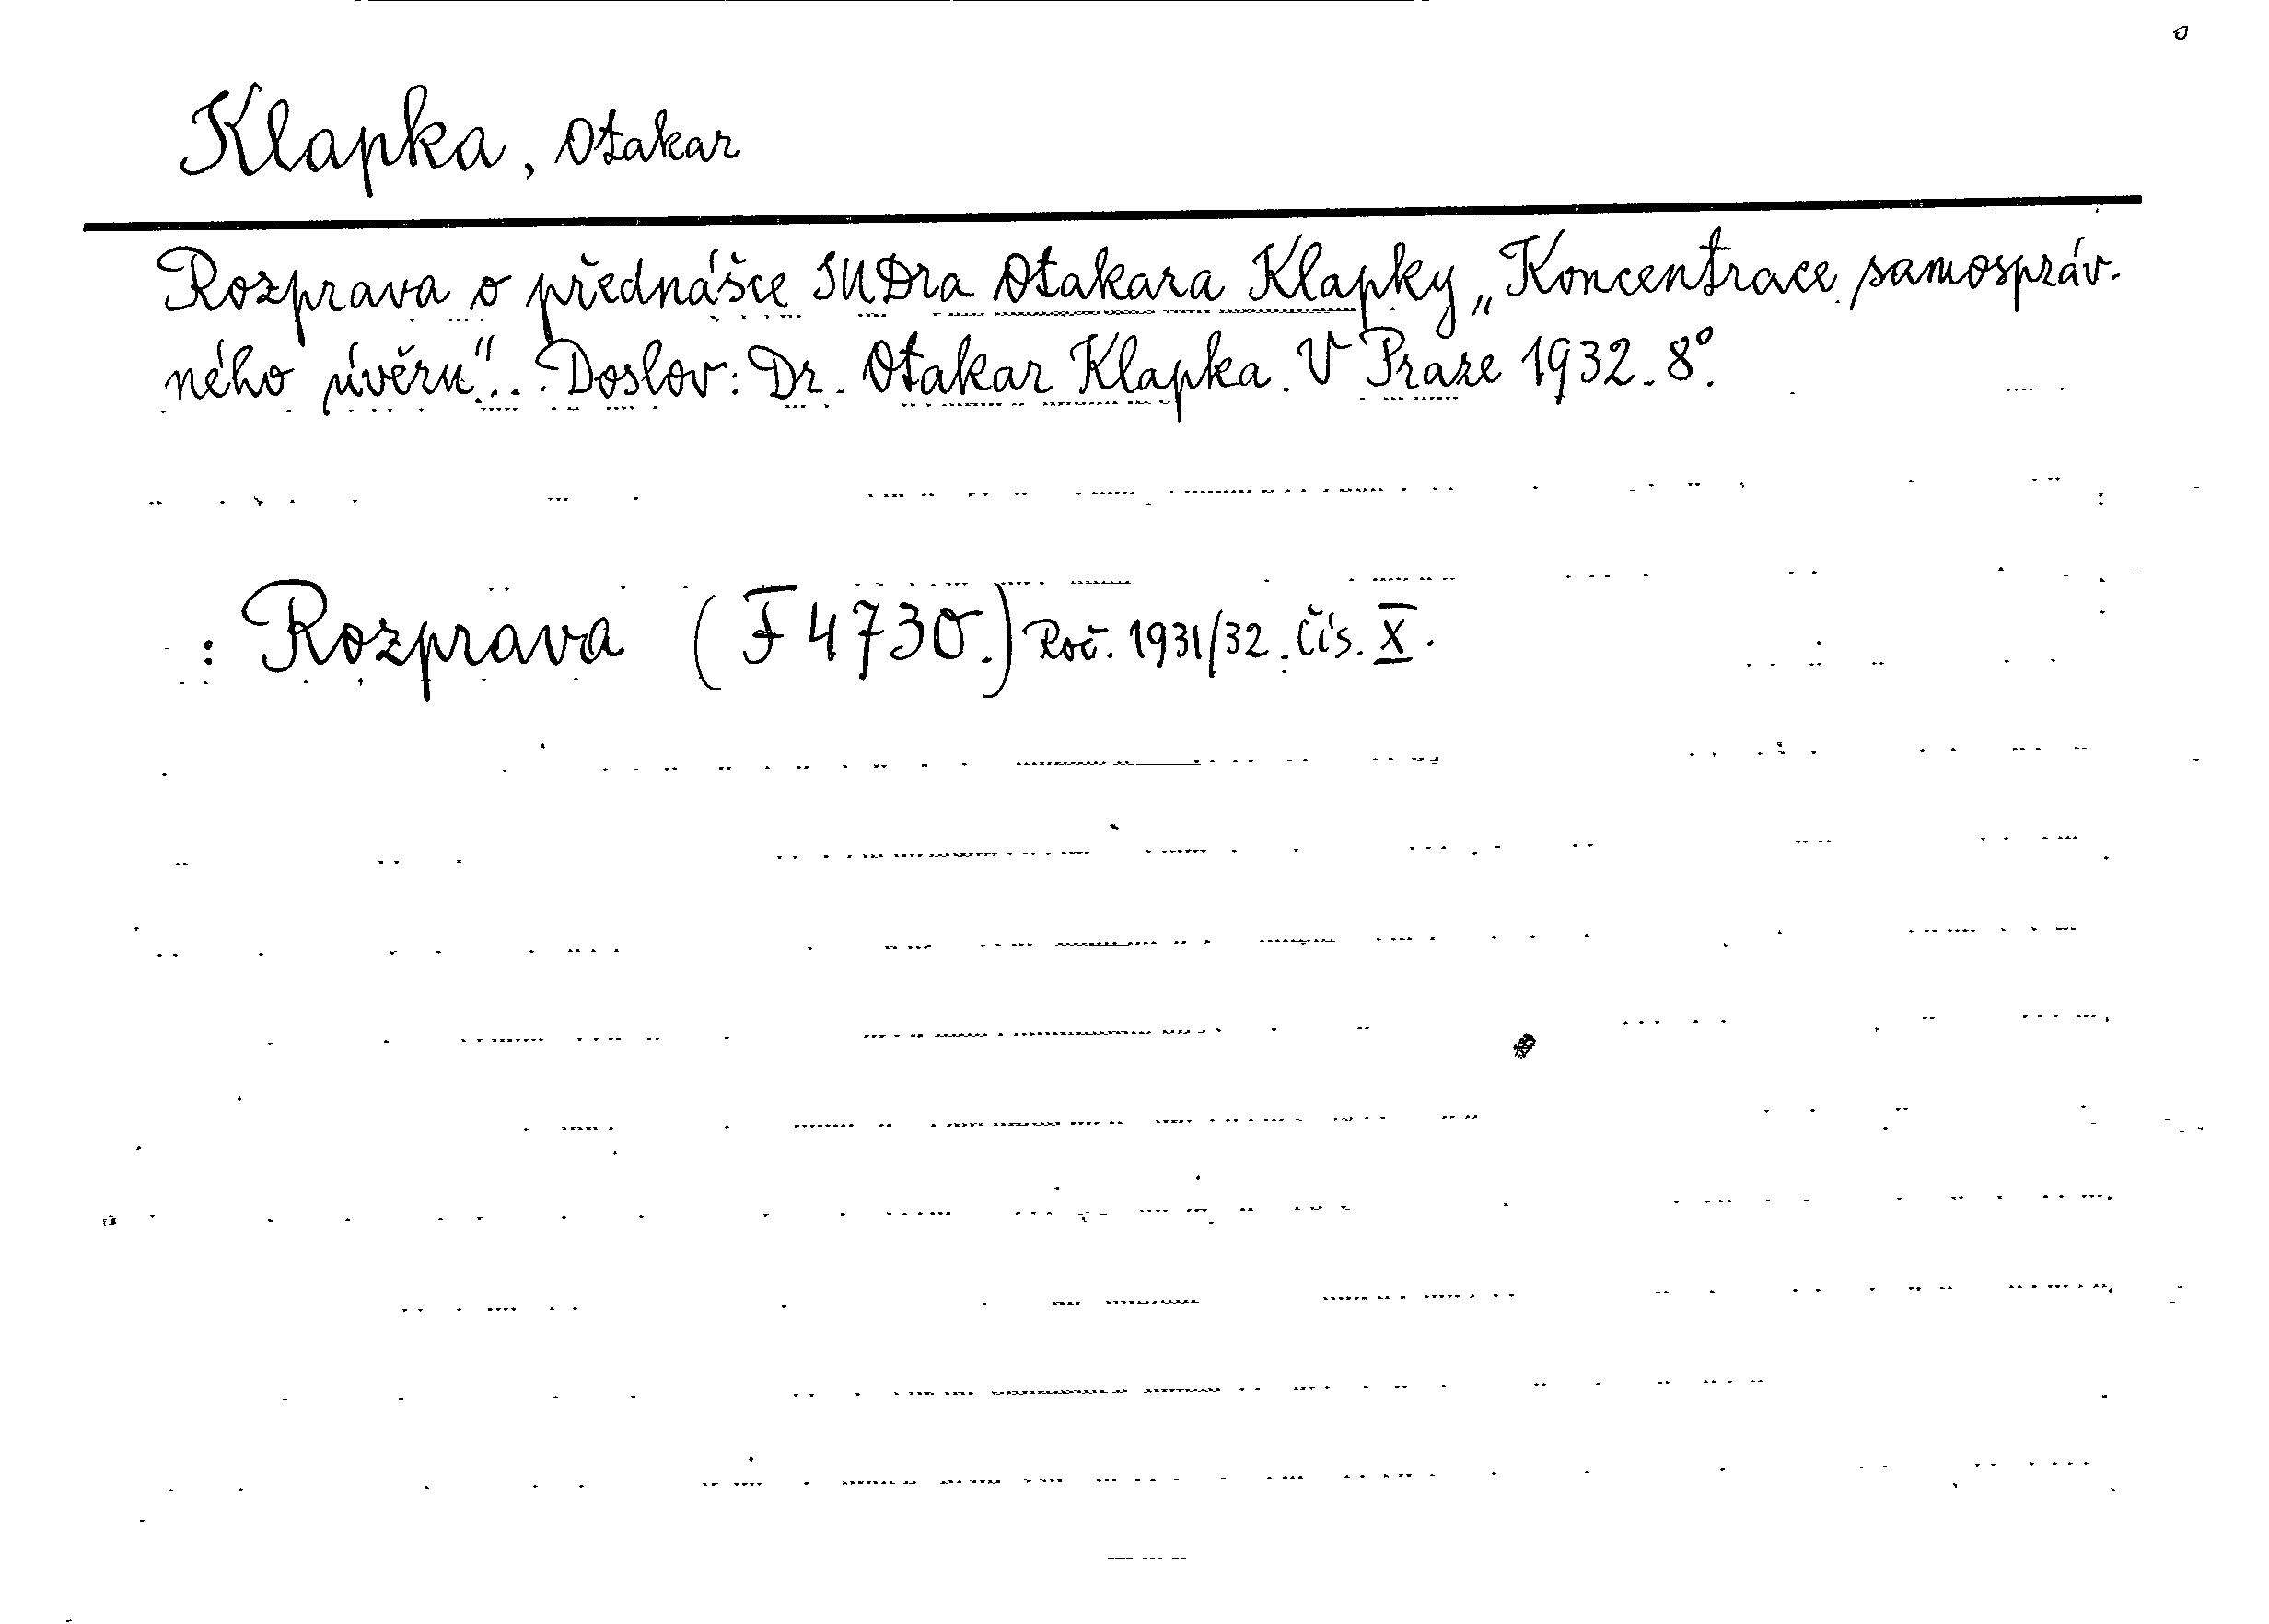 Klapka, Otakar
Rozprava o přednášce JUDra Otakara Klapky „Koncentrace samospráv-
ného úvěru"... Doslov: Dr. Otakar Klapka. V Praze 1932. 8°.
: Rozprava (F 4730.) Roč. 1931/32. Čís. X.